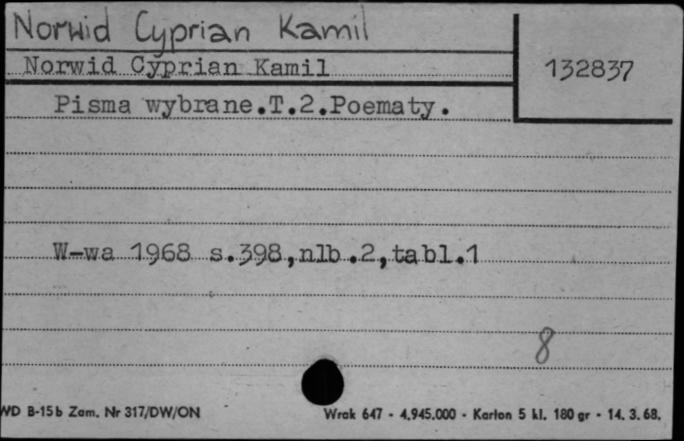 Norwid Cyprian Kamil
Norwid Cyprian Kamil
132837
Pisma wybrane.T.2.Poematy.
W-wa 1968 s.398,nlb.2,tabl.1
8
WD B-15b Zam. Nr 317/DW/ON
Wrak 647 - 4.945.000 - Karton 5 kl. 180 gr - 14. 3. 68.